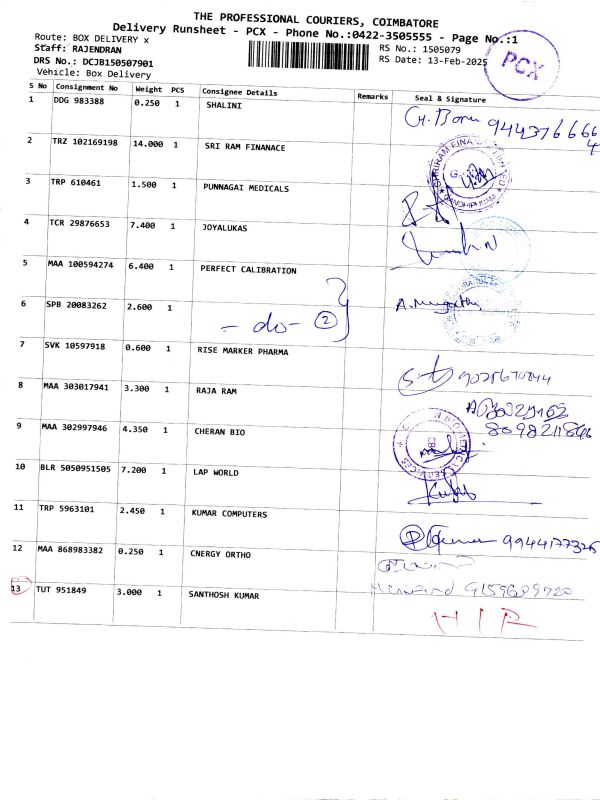 THE PROFESSIONAL COURIERS, COIMBATORE
Delivery Runsheet - PCX - Phone No.:0422-3505555 - Page No.:1
Route: BOX DELIVERY x
RS No.: 1505079
Staff: RAJENDRAN
RS Date: 13-Feb-2025
DRS No.: DCJB150507901
Vehicle: Box Delivery
PCX
S No Consignment No Weight PCS Consignee Details Remarks Seal & Signature
1 DDG 983388 0.250 1 SHALINI
2 TRZ 102169198 14.000 1 SRI RAM FINANACE
3 TRP 610461 1.500 1 PUNNAGAI MEDICALS
4 TCR 29876653 7.400 1 JOYALUKAS
5 MAA 100594274 6.400 1 PERFECT CALIBRATION
6 SPB 20083262 2.600 1 - do - 2
7 SVK 10597918 0.600 1 RISE MARKER PHARMA
8 MAA 303017941 3.300 1 RAJA RAM
8098211846
9 MAA 302997946 4.350 1 CHERAN BIO
10 BLR 5050951505 7.200 1 LAP WORLD
11 TRP 5963101 2.450 1 KUMAR COMPUTERS
9944177326
12 MAA 868983382 0.250 1 CNERGY ORTHO
13 TUT 951849 3.000 1 SANTHOSH KUMAR